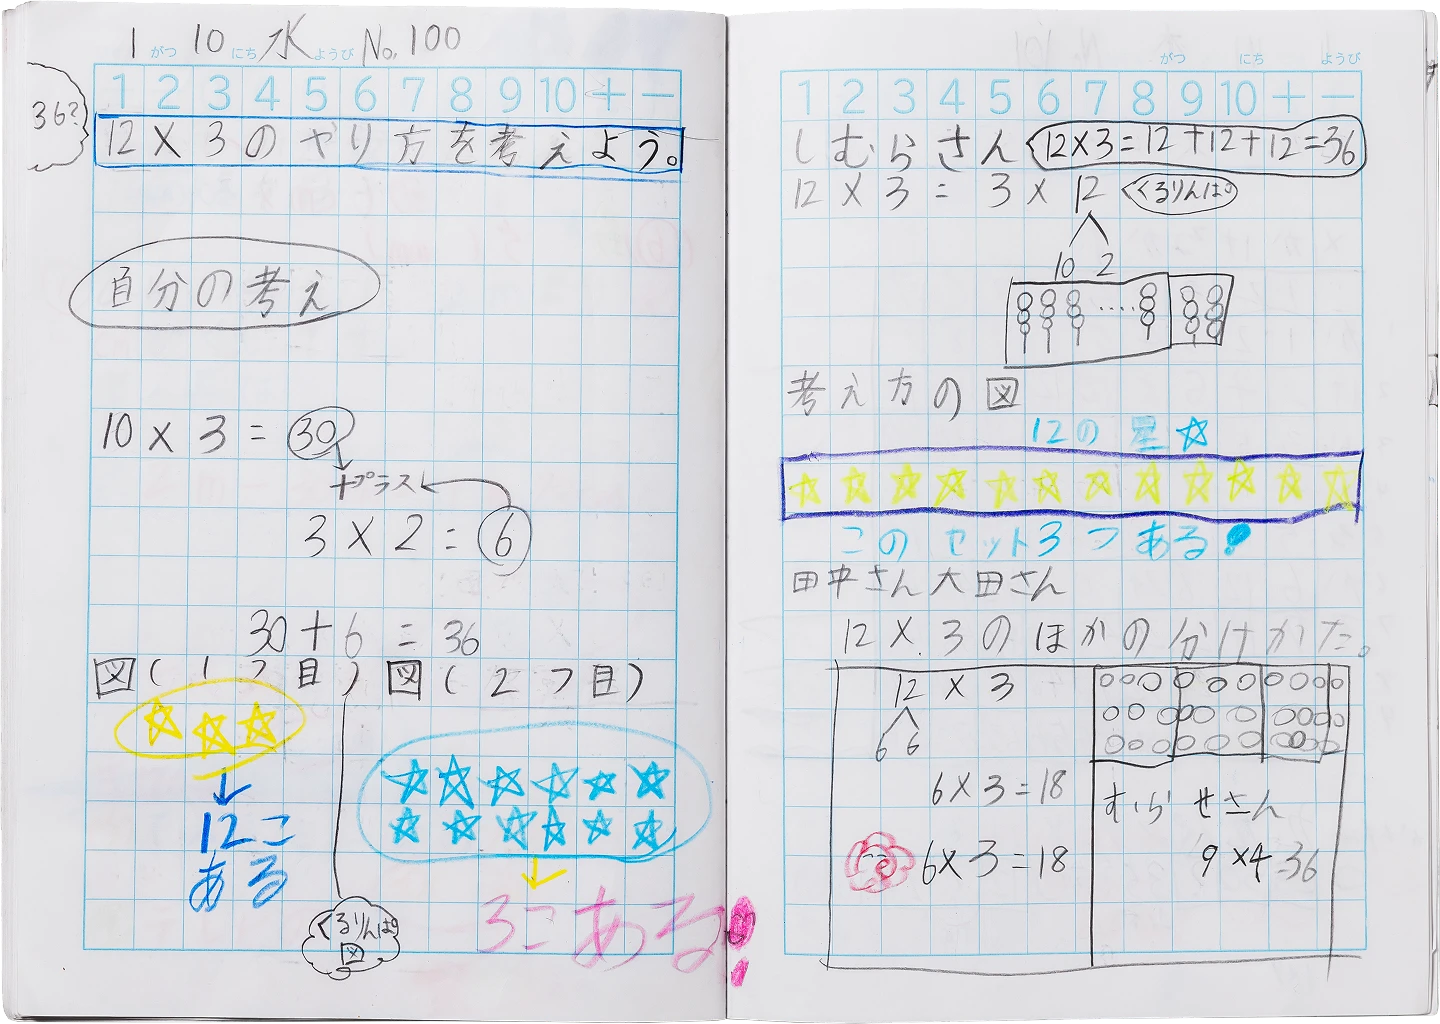 1がつ10にち水ようび No.100
1 2 3 4 5 6 7 8 9 10 + −
36?
12×3のやり方を考えよう。
自分の考え
10×3=30
+プラス
3×2=6
30+6=36
図(1つ目)
12こ
ある
図(2つ目)
3こある!
くるりんぱ。
図
がつ にち ようび
1 2 3 4 5 6 7 8 9 10 + −
しむらさん 12×3=12+12+12=36
12×3=3×12 くるりんぱ。
10 2
考え方の図
12の星☆
このセット3つある!
田中さん大田さん
12×3のほかの分けかた。
12×3
6 6
6×3=18
6×3=18
むらせさん
9×4=36